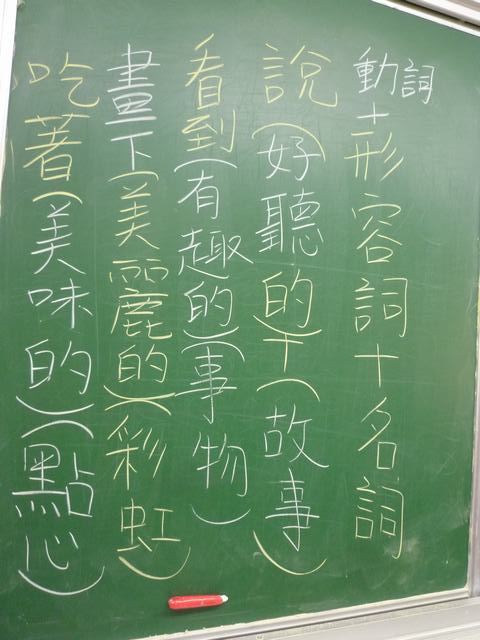 動詞+形容詞+名詞
說(好聽的)+(故事)
看到(有趣的)(事物)
畫下(美麗的)(彩虹)
吃著(美味的)(點心)